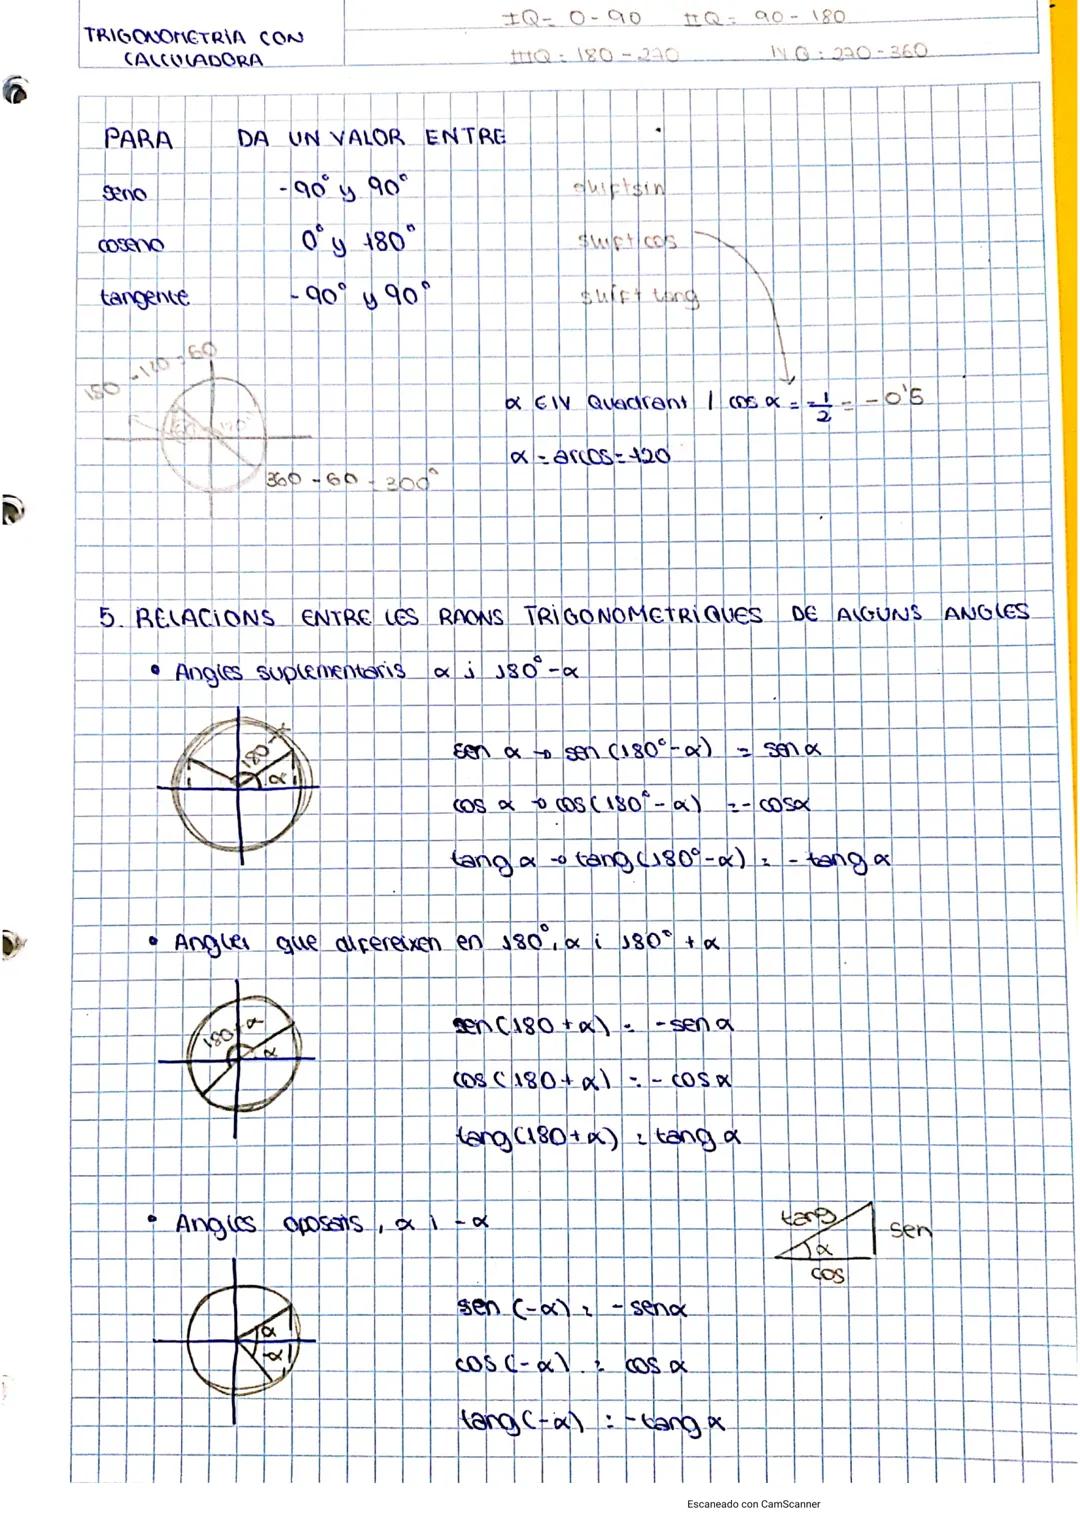 TRIGONOMETRIA CON
CALCULADORA
IQ= 0-90 IIQ= 90-180
IIIQ: 180-270 IVQ: 270-360
PARA DA UN VALOR ENTRE
seno -90° y 90° shiftsin
coseno 0° y 180° shift cos
tangente -90° y 90° shift tang
180-120=60
60 120°
360-60=300°
α ∈ IV Quadrant / cos α = -1/2 = -0'5
α = arccos = 120
5. RELACIONS ENTRE LES RAONS TRIGONOMETRIQUES DE ALGUNS ANGLES
• Angles suplementaris α i 180°-α
180-α
α
sen α → sen (180°-α) = sen α
cos α → cos (180°-α) = -cosα
tang α → tang (180°-α) = -tang α
• Angles que difereixen en 180°, α i 180° + α
180+α
α
sen (180+α) = -sen α
cos (180+α) = -cos α
tang (180+α) = tang α
• Angles oposats, α i -α
tang
sen
α
cos
α
-α
sen (-α) = -senα
cos (-α) = cos α
tang (-α) = -tang α
Escaneado con CamScanner